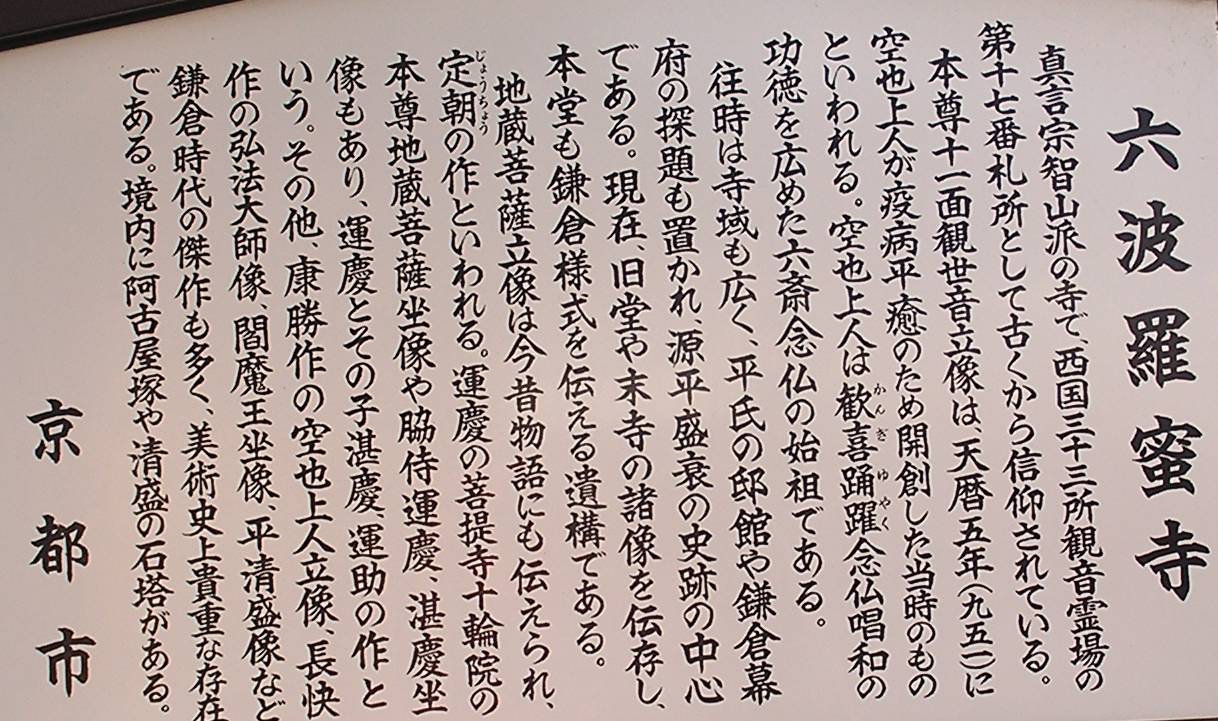 六波羅蜜寺
真言宗智山派の寺で、西国三十三所観音霊場の
第十七番札所として古くから信仰されている。
本尊十一面観世音立像は、天暦五年(九五一)に
空也上人が疫病平癒のため開創した当時のもの
といわれる。空也上人は歓喜踊躍念仏唱和の
かんぎゆやく
功徳を広めた六斎念仏の始祖である。
往時は寺域も広く、平氏の邸館や鎌倉幕
府の探題も置かれ、源平盛衰の史跡の中心
である。現在、旧堂や末寺の諸像を伝存し、
本堂も鎌倉様式を伝える遺構である。
地蔵菩薩立像は今昔物語にも伝えられ、
じょうちょう
定朝の作といわれる。運慶の菩提寺十輪院の
本尊地蔵菩薩坐像や脇侍運慶、湛慶坐
像もあり、運慶とその子湛慶、運助の作と
いう。その他、康勝作の空也上人立像、長快
作の弘法大師像、閻魔王坐像、平清盛像など
鎌倉時代の傑作も多く、美術史上貴重な存在
である。境内に阿古屋塚や清盛の石塔がある。
京都市